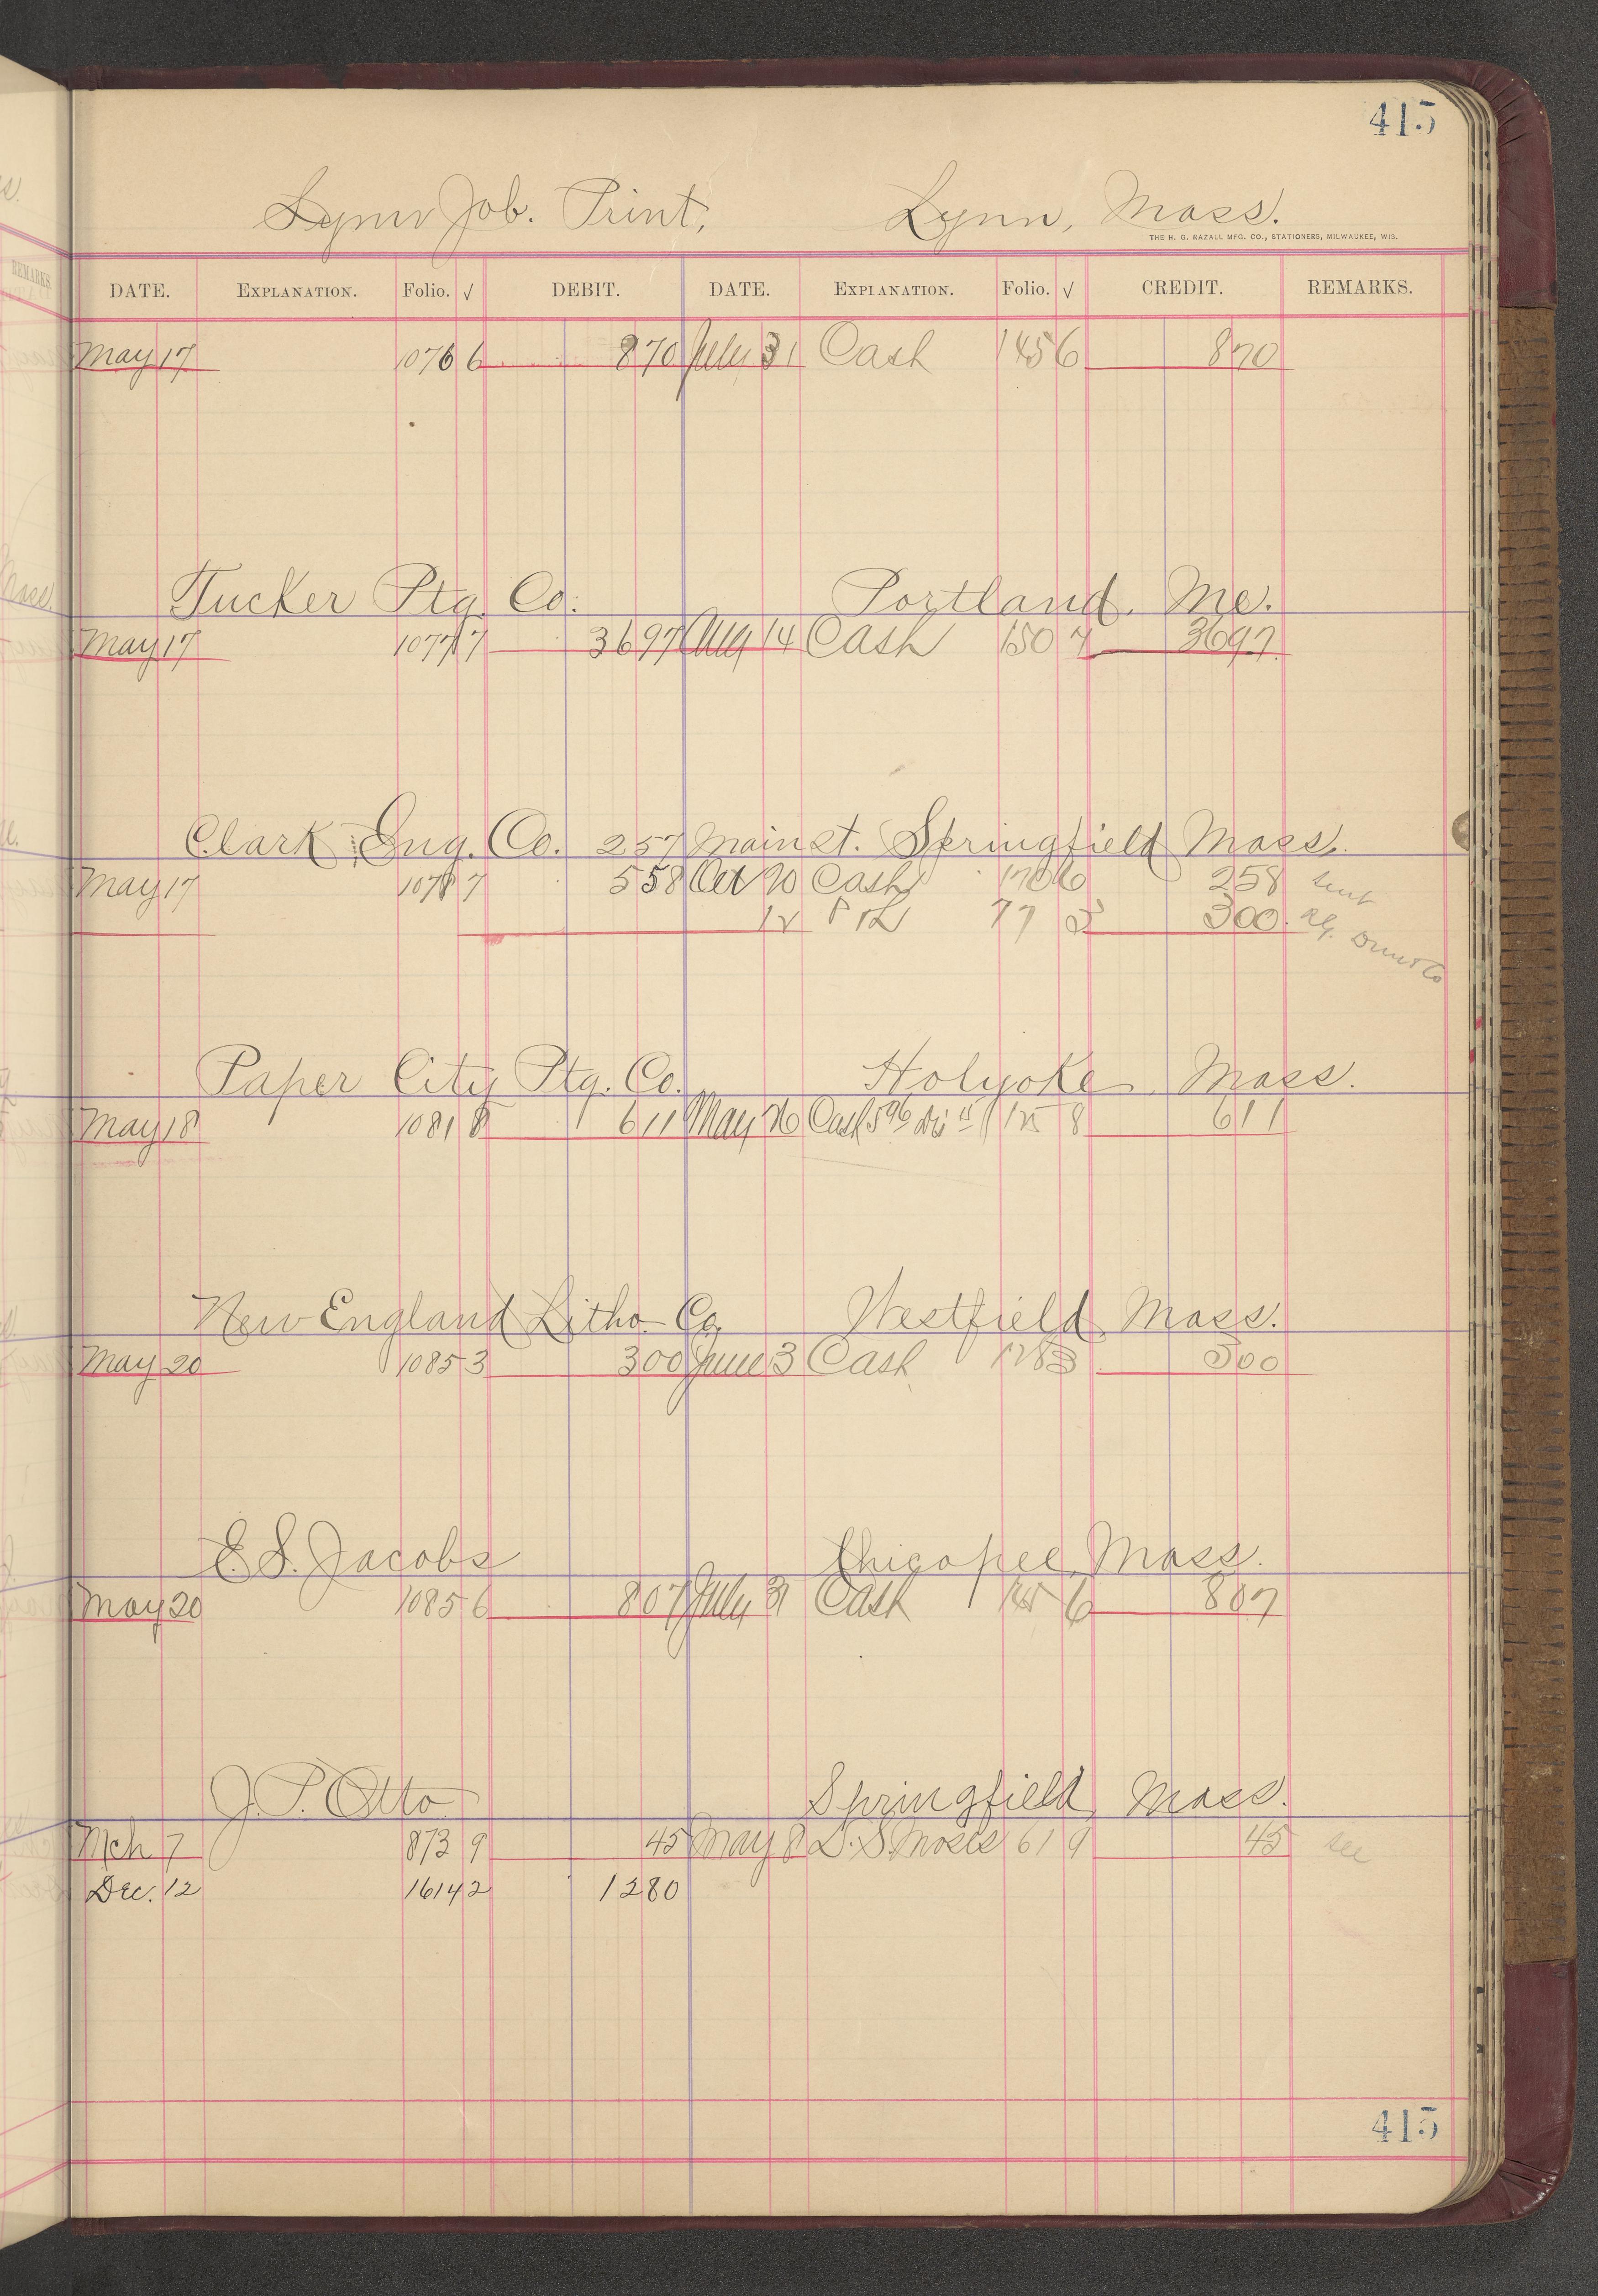 415
Lynn Job. Print, Lynn, Mass.
THE H. G. RAZALL MFG. CO., STATIONERS, MILWAUKEE, WIS.
DATE. EXPLANATION. Folio. √ DEBIT. DATE. EXPLANATION. Folio. √ CREDIT. REMARKS.
May 17 1076 6 8 70 July 31 Cash 145 6 8 70
Tucker Ptg. Co. Portland, Me.
May 17 1077 7 36 97 Aug 14 Cash 150 7 36 97
Clark Eng. Co. 257 Main St. Springfield Mass.
May 17 1078 7 5 58 Oct 20 Cash 170 6 2 58 sent
12 77 3 00
Paper City Ptg. Co. Holyoke Mass.
May 18 1081 8 6 11 May 26 Cash 8 6 11
New England Litho Co. Westfield Mass.
May 20 1085 3 3 00 June 3 Cash 128 3 3 00
E. S. Jacobs Chicopee, Mass.
May 20 1085 6 8 07 July 31 Cash 145 6 8 07
J. P. Otto Springfield, Mass.
Mch 7 873 9 45 May 8 L. S. Moses 61 9 45 see
Dec. 12 1614 2 12 80
415